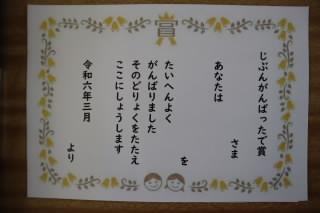 賞
じぶんがんばったで賞
さま
あなたは
を
たいへんよく
がんばりました
そのどりょくをたたえ
ここにしょうします
令和六年三月
より